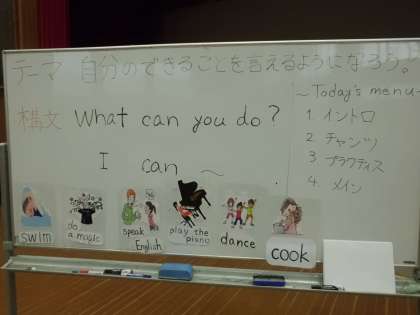 テーマ 自分のできることを言えるようになろう。
構文 What can you do?
I can ～
～Today's menu～
1 イントロ
2 チャンツ
3 プラクティス
4. メイン
swim
do a magic
speak English
play the piano
dance
cook